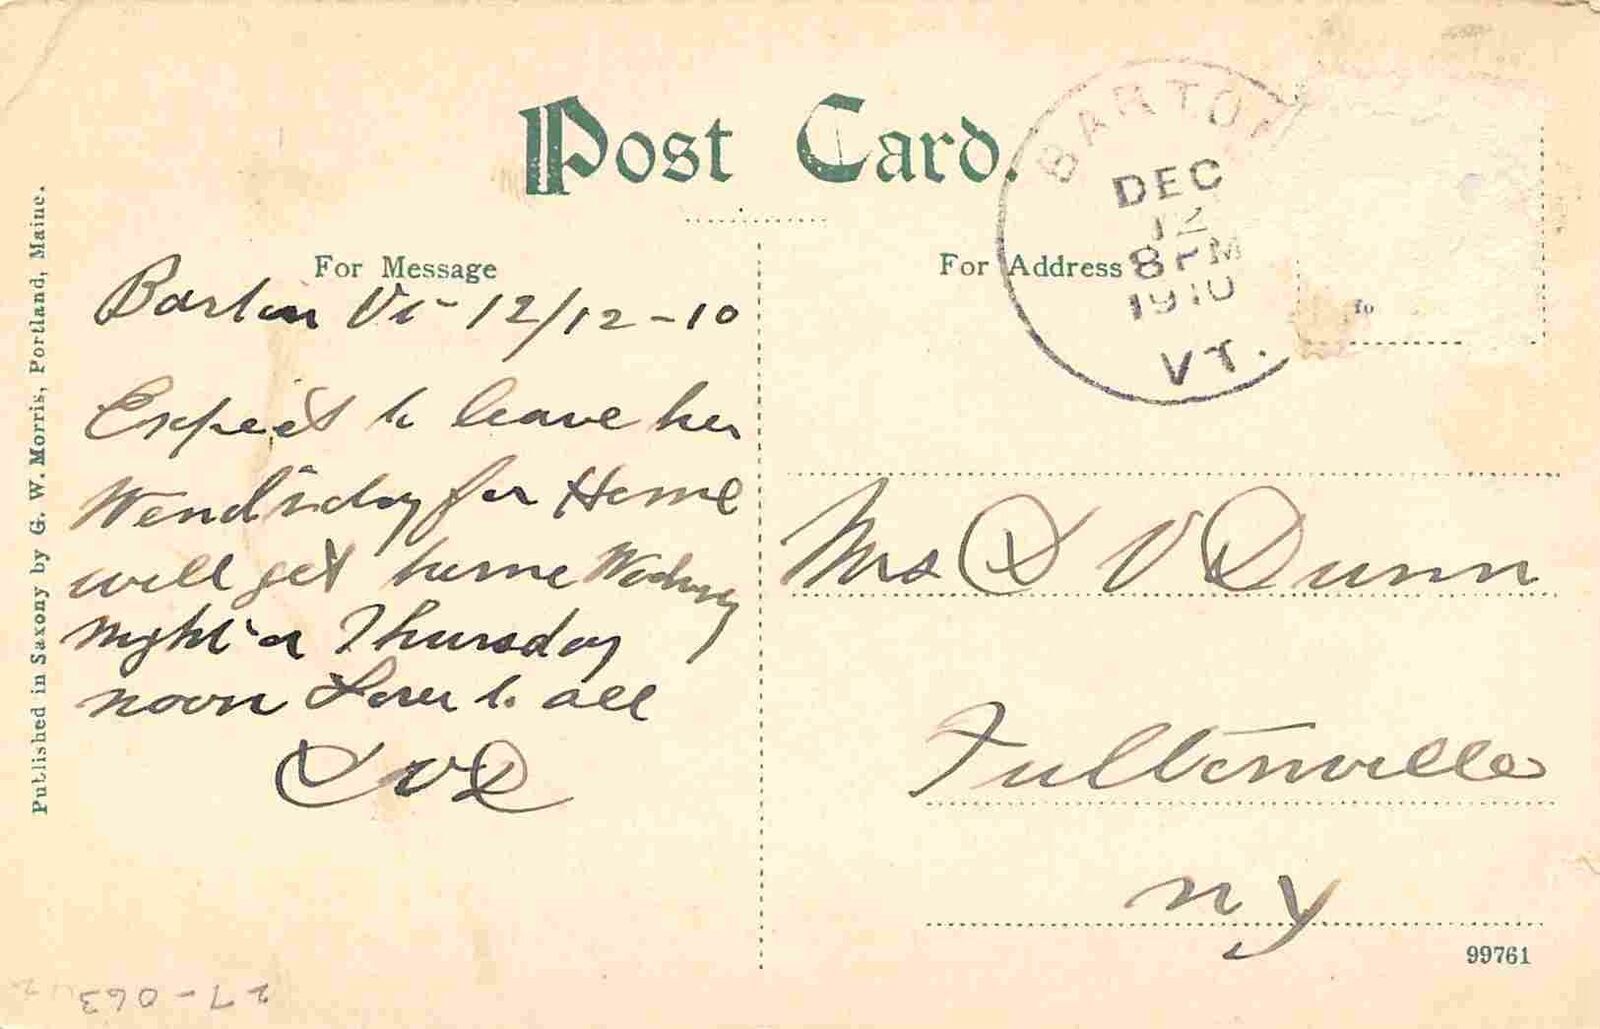 Post Card.
BARTON
DEC
12
8 PM
1910
VT.
For Message
For Address
Barton Vt 12/12-10
Expect to leave her
Wendsday for Home
will get home Wedsney
night or Thursday
noon Love to all
DVD
Mrs D V Dunn
Fultonville
NY
99761
Published in Saxony by G. W. Morris, Portland, Maine.
27-063